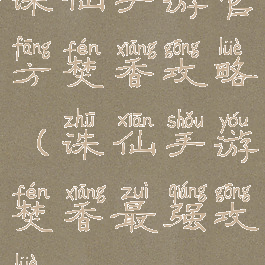 诛仙手游官
fāng fén xiāng gōng lüè
方焚香攻略
zhū xiān shǒu yóu
(诛仙手游
fén xiāng zuì qiáng gōng
焚香最强攻
lüè